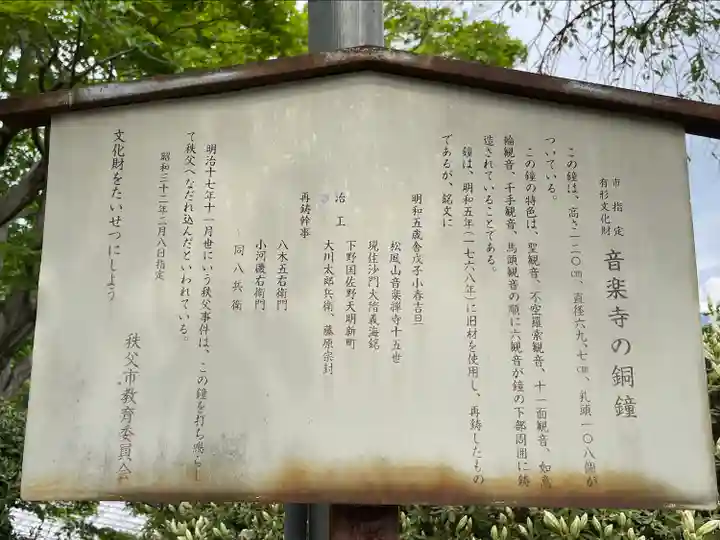 市指定
有形文化財
音楽寺の銅鐘
この鐘は、高さ一二〇㎝、直径六九、七㎝、乳頭一〇八個が
ついている。
この鐘の特色は、聖観音、不空羂索観音、十一面観音、如意
輪観音、千手観音、馬頭観音の順に六観音が鐘の下部周囲に鋳
造されていることである。
鐘は、明和五年(一七六八年)に旧材を使用し、再鋳したもの
であるが、銘文に
明和五歳舎戊子小春吉旦
松風山音楽禅寺十五世
現住沙門大憧義海銘
冶工
下野国佐野天明新町
大川太郎兵衛、藤原宗封
再鋳幹事
八木五右衛門
小河磯右衛門
同八兵衛
明治十七年十一月世にいう秩父事件は、この鐘を打ち鳴らし
て秩父へなだれ込んだといわれている。
昭和三十二年二月八日指定
文化財をたいせつにしよう
秩父市教育委員会